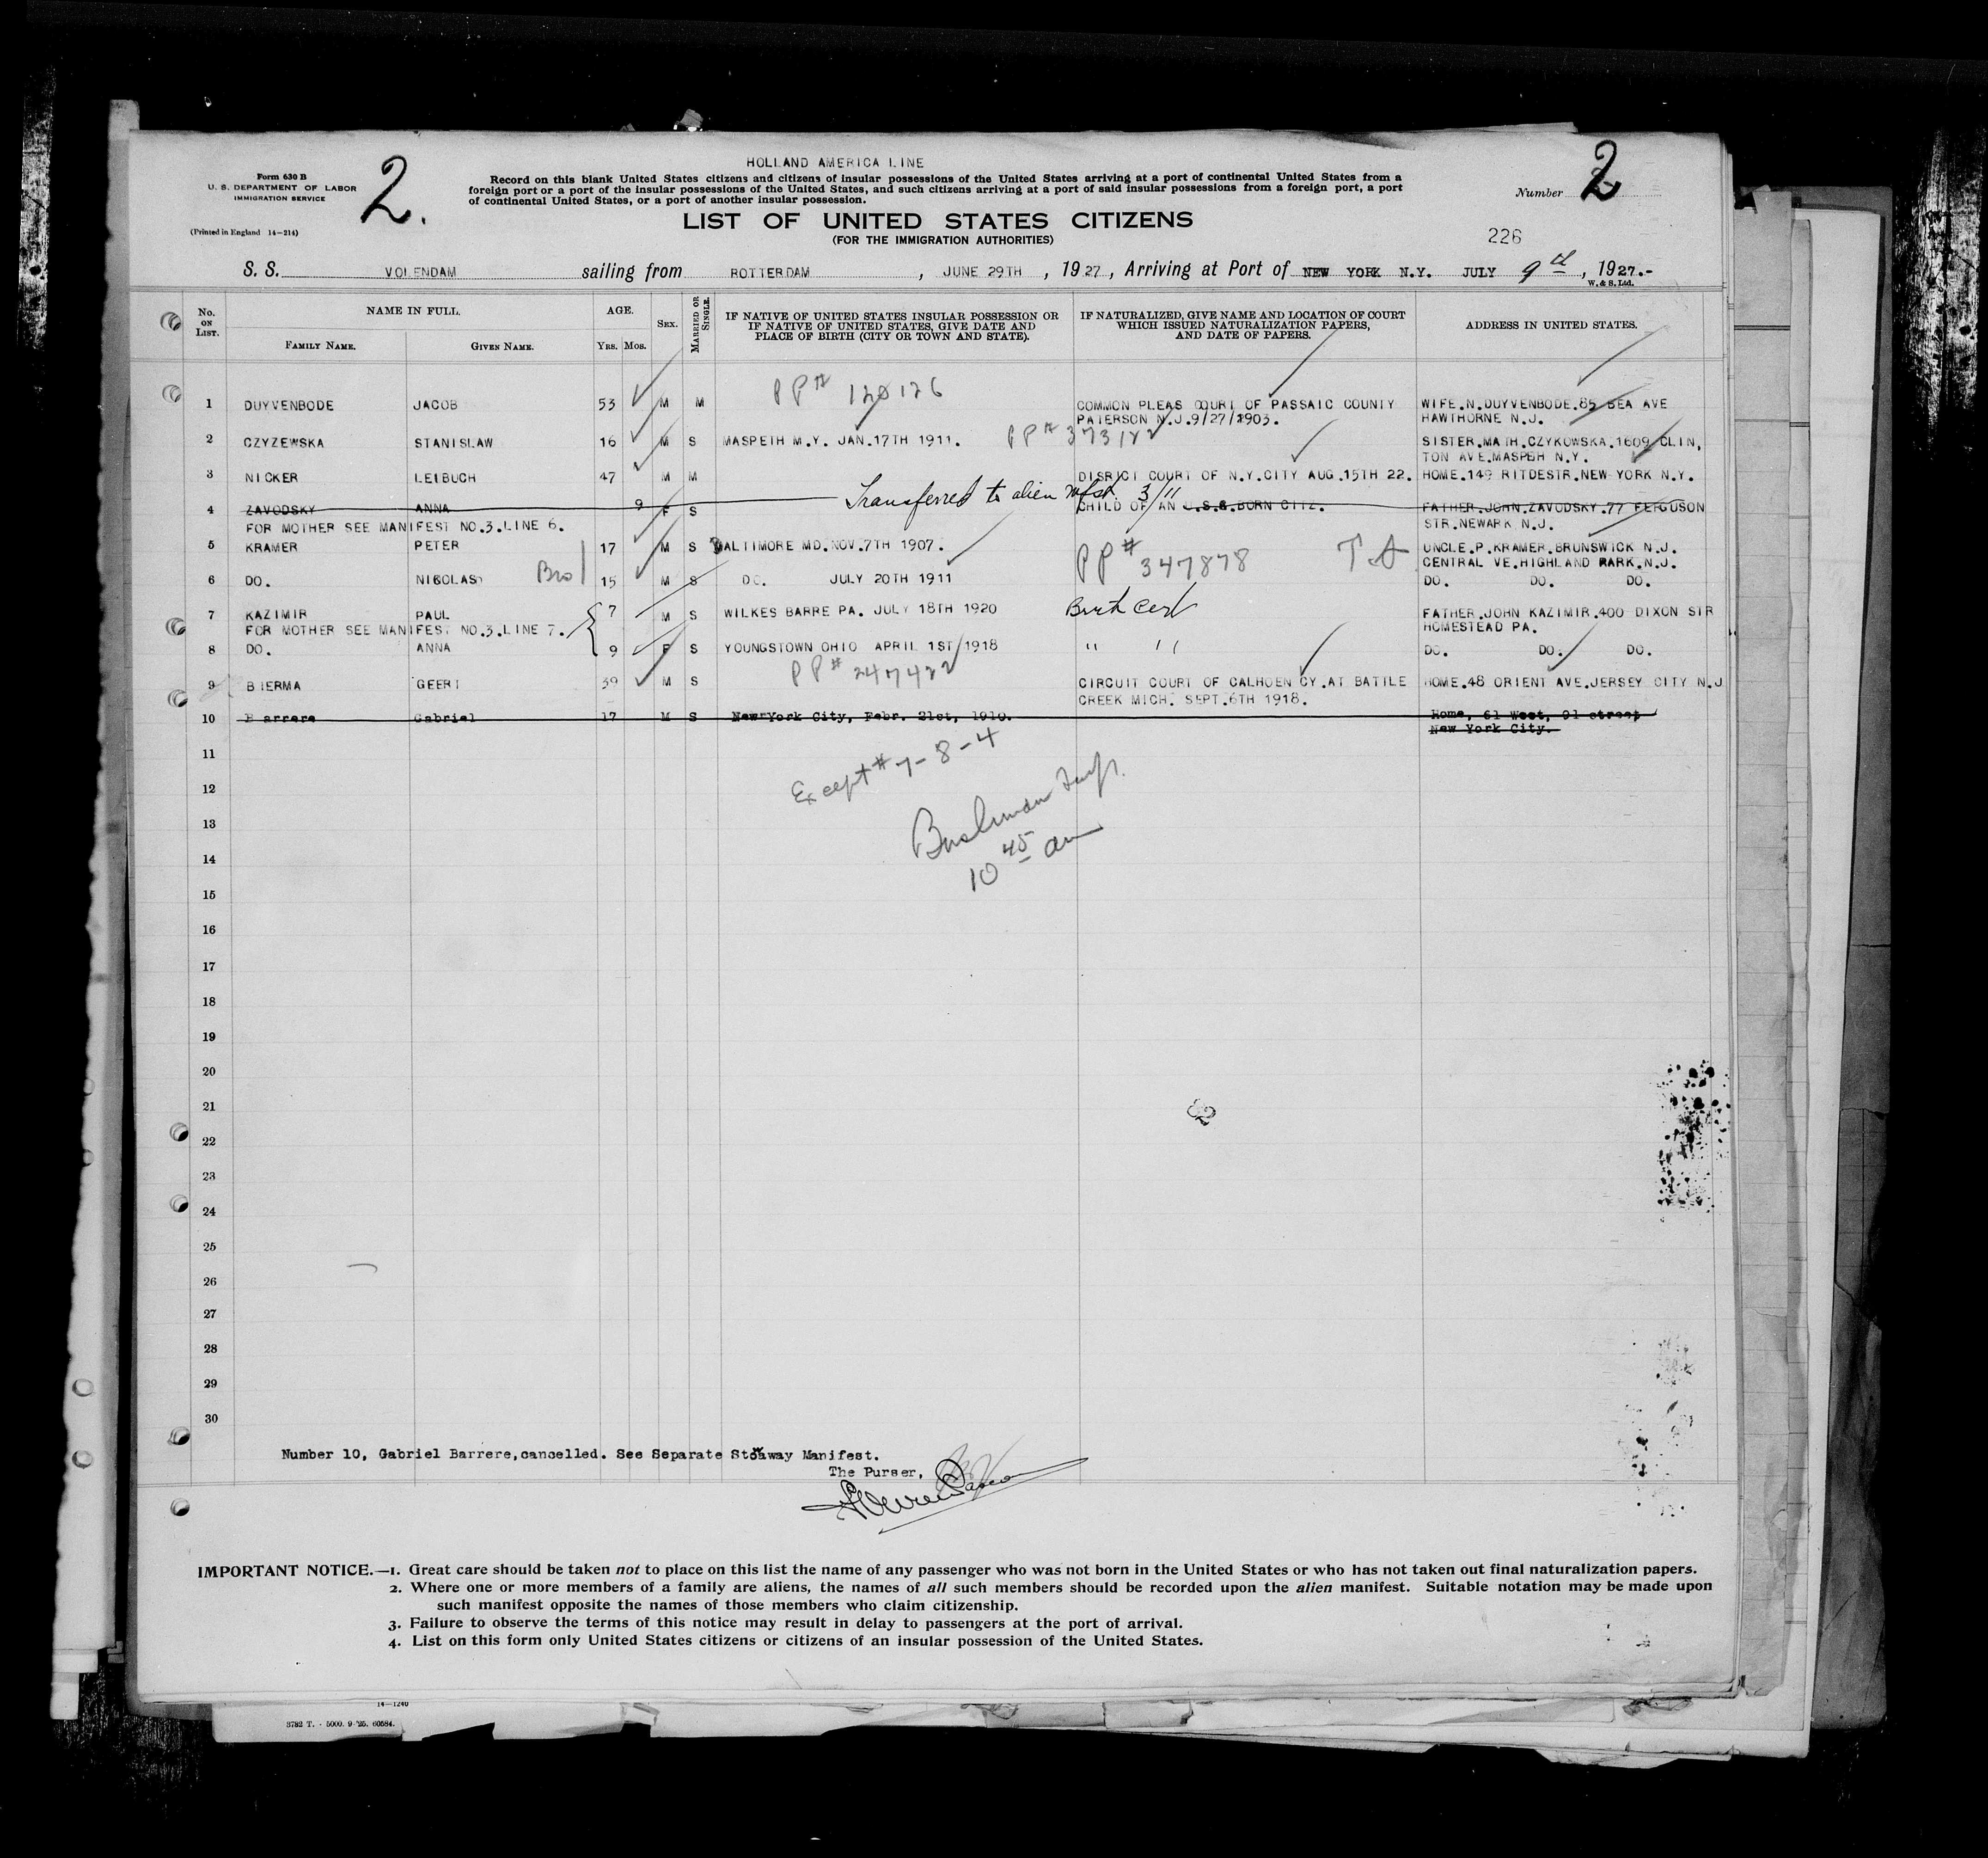 HOLLAND AMERICA LINE
Form 630 B
U. S. DEPARTMENT OF LABOR
IMMIGRATION SERVICE
(Printed in England 14—214)
2.
Record on this blank United States citizens and citizens of insular possessions of the United States arriving at a port of continental United States from a
foreign port or a port of the insular possessions of the United States, and such citizens arriving at a port of said insular possessions from a foreign port, a port
of continental United States, or a port of another insular possession.
Number 2
LIST OF UNITED STATES CITIZENS
(FOR THE IMMIGRATION AUTHORITIES)
226
S. S. VOLENDAM sailing from ROTTERDAM, JUNE 29TH, 1927, Arriving at Port of NEW YORK N.Y. JULY 9th, 1927.-
W. & S. Ltd.
No. ON LIST.
NAME IN FULL.
FAMILY NAME. GIVEN NAME.
AGE.
YRS. MOS.
SEX.
MARRIED OR SINGLE.
IF NATIVE OF UNITED STATES INSULAR POSSESSION OR
IF NATIVE OF UNITED STATES, GIVE DATE AND
PLACE OF BIRTH (CITY OR TOWN AND STATE).
IF NATURALIZED, GIVE NAME AND LOCATION OF COURT
WHICH ISSUED NATURALIZATION PAPERS,
AND DATE OF PAPERS.
ADDRESS IN UNITED STATES.
PP# 120126
1 DUYVENBODE JACOB 53 M M COMMON PLEAS COURT OF PASSAIC COUNTY WIFE.N.DUYVENBODE.85 BEA AVE
PATERSON N.J.9/27/1903. HAWTHORNE N.J.
2 CZYZEWSKA STANISLAW 16 M S MASPETH M.Y. JAN.17TH 1911. PP# 373122 SISTER.MATH.CZYKOWSKA.1609 CLIN,
TON AVE.MASPEH N.Y.
3 NICKER LEIBUCH 47 M M DISRICT COURT OF N.Y.CITY AUG.15TH 22. HOME.149 RITDESTR.NEW YORK N.Y.
Transferred to alien mfst. 3/11
4 ZAVODSKY ANNA 9 F S CHILD OF AN U.S.S.BORN CITZ. FATHER.JOHN.ZAVODSKY.77 FERGUSON
FOR MOTHER SEE MANIFEST NO.3.LINE 6. STR.NEWARK N.J.
5 KRAMER PETER 17 M S BALTIMORE MD.NOV.7TH 1907. UNCLE.P.KRAMER.BRUNSWICK N.J.
PP# 347878 T A CENTRAL VE.HIGHLAND PARK.N.J.
6 DO. NIKOLAS Bro 15 M S DO. JULY 20TH 1911 DO. DO. DO.
7 KAZIMIR PAUL 7 M S WILKES BARRE PA. JULY 18TH 1920 Birth Cert FATHER.JOHN KAZIMIR.400 DIXON STR
FOR MOTHER SEE MANIFEST NO.3.LINE 7. HOMESTEAD PA.
8 DO. ANNA 9 F S YOUNGSTOWN OHIO APRIL 1ST 1918 " " DO. DO. DO.
PP# 247422
9 BIERMA GEERT 39 M S CIRCUIT COURT OF CALHOEN CY.AT BATTLE HOME.48 ORIENT AVE.JERSEY CITY N.J
CREEK MICH. SEPT.6TH 1918.
10 Barrere Gabriel 17 M S New York City, Febr. 21st, 1910. Home, 61 West, 91 street
New York City.
Except # 7-8-4
Bushman Insp.
10 45 am
11
12
13
14
15
16
17
18
19
20
21
22
23
24
25
26
27
28
29
30
Number 10, Gabriel Barrere, cancelled. See Separate Stowaway Manifest.
The Purser,
IMPORTANT NOTICE.—1. Great care should be taken not to place on this list the name of any passenger who was not born in the United States or who has not taken out final naturalization papers.
2. Where one or more members of a family are aliens, the names of all such members should be recorded upon the alien manifest. Suitable notation may be made upon
such manifest opposite the names of those members who claim citizenship.
3. Failure to observe the terms of this notice may result in delay to passengers at the port of arrival.
4. List on this form only United States citizens or citizens of an insular possession of the United States.
14—1240
3782 T. - 5000. 9-'25. 60584.